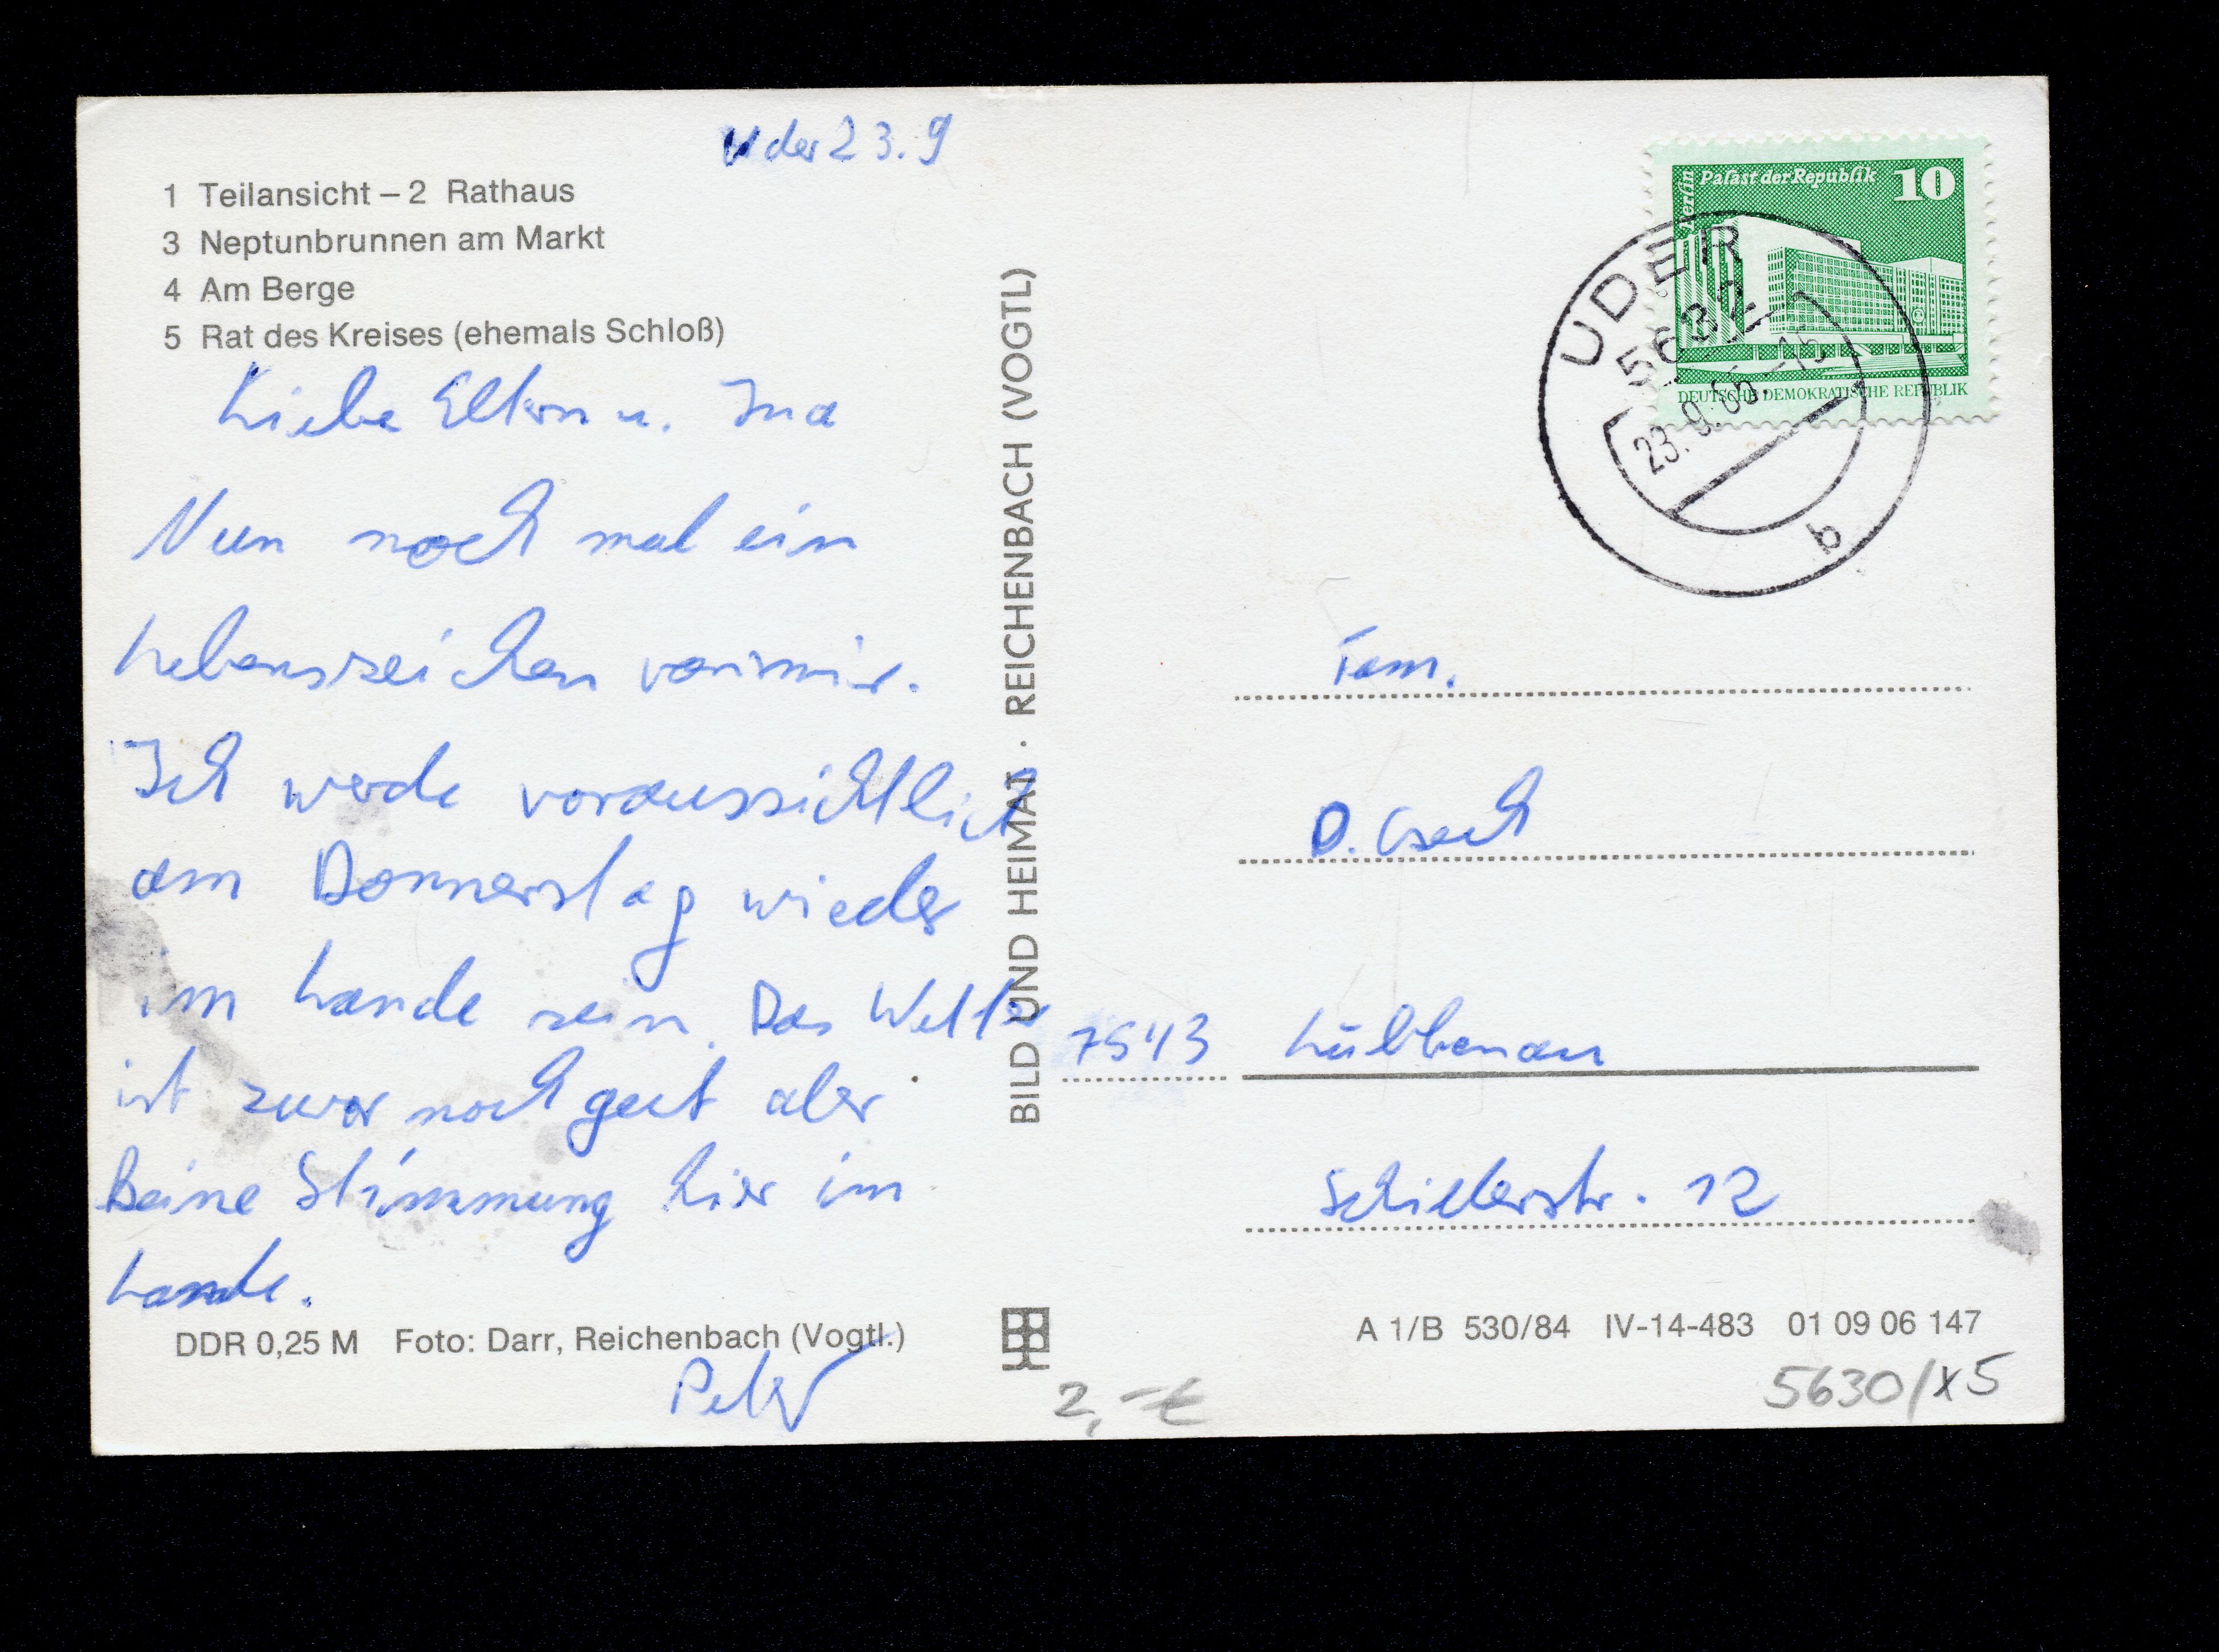 Uder 23. 9
1 Teilansicht – 2 Rathaus
3 Neptunbrunnen am Markt
4 Am Berge
5 Rat des Kreises (ehemals Schloß)
Liebe Eltern u. Ina
Nun noch mal ein
Lebenszeichen von mir.
Ich werde voraussichtlich
am Donnerstag wieder
im Lande sein. Das Wetter
ist zwar noch gut aber
keine Stimmung hier im
Lande.
DDR 0,25 M Foto: Darr, Reichenbach (Vogtl.)
Peter
BILD UND HEIMAT · REICHENBACH (VOGTL)
Berlin
Palast der Republik 10
DEUTSCHE DEMOKRATISCHE REPUBLIK
UDER
5632
23.9. -15
b
Fam.
D. Czach
7543 Lübbenau
Schillerstr. 12
A 1/B 530/84 IV-14-483 01 09 06 147
2,-€
5630/x5